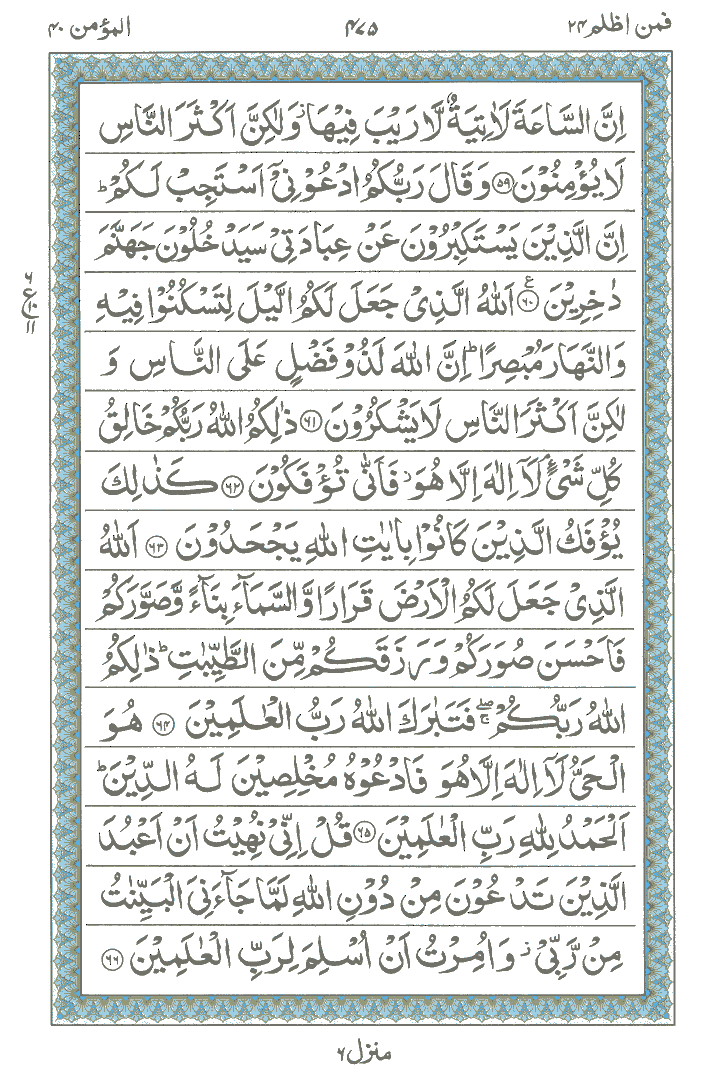 المؤمن ۴۰ ۴۷۵ فمن اظلم ۲۴
اِنَّ السَّاعَةَ لَاٰتِيَةٌ لَّا رَيْبَ فِيْهَا ۡ وَلٰكِنَّ اَكْثَرَ النَّاسِ
لَا يُؤْمِنُوْنَ ﴿۵۹﴾ وَقَالَ رَبُّكُمُ ادْعُوْنِيْۤ اَسْتَجِبْ لَكُمْ ؕ
اِنَّ الَّذِيْنَ يَسْتَكْبِرُوْنَ عَنْ عِبَادَتِيْ سَيَدْخُلُوْنَ جَهَنَّمَ
دٰخِرِيْنَ ﴿۶۰﴾ ع اَللّٰهُ الَّذِيْ جَعَلَ لَكُمُ الَّيْلَ لِتَسْكُنُوْا فِيْهِ
۶
ع
۱۰
۱۱
وَالنَّهَارَ مُبْصِرًا ؕ اِنَّ اللّٰهَ لَذُوْ فَضْلٍ عَلَى النَّاسِ وَ
لٰكِنَّ اَكْثَرَ النَّاسِ لَا يَشْكُرُوْنَ ﴿۶۱﴾ ذٰلِكُمُ اللّٰهُ رَبُّكُمْ خَالِقُ
كُلِّ شَيْءٍ ۘ لَاۤ اِلٰهَ اِلَّا هُوَ ۡ فَاَنّٰى تُؤْفَكُوْنَ ﴿۶۲﴾ كَذٰلِكَ
يُؤْفَكُ الَّذِيْنَ كَانُوْا بِاٰيٰتِ اللّٰهِ يَجْحَدُوْنَ ﴿۶۳﴾ اَللّٰهُ
الَّذِيْ جَعَلَ لَكُمُ الْاَرْضَ قَرَارًا وَّالسَّمَآءَ بِنَآءً وَّصَوَّرَكُمْ
فَاَحْسَنَ صُوَرَكُمْ وَرَزَقَكُمْ مِّنَ الطَّيِّبٰتِ ؕ ذٰلِكُمُ
اللّٰهُ رَبُّكُمْ ۖۚ فَتَبٰرَكَ اللّٰهُ رَبُّ الْعٰلَمِيْنَ ﴿۶۴﴾ هُوَ
الْحَيُّ لَاۤ اِلٰهَ اِلَّا هُوَ فَادْعُوْهُ مُخْلِصِيْنَ لَهُ الدِّيْنَ ؕ
اَلْحَمْدُ لِلّٰهِ رَبِّ الْعٰلَمِيْنَ ﴿۶۵﴾ قُلْ اِنِّيْ نُهِيْتُ اَنْ اَعْبُدَ
الَّذِيْنَ تَدْعُوْنَ مِنْ دُوْنِ اللّٰهِ لَمَّا جَآءَنِيَ الْبَيِّنٰتُ
مِنْ رَّبِّيْ ۡ وَاُمِرْتُ اَنْ اُسْلِمَ لِرَبِّ الْعٰلَمِيْنَ ﴿۶۶﴾
منزل ۶